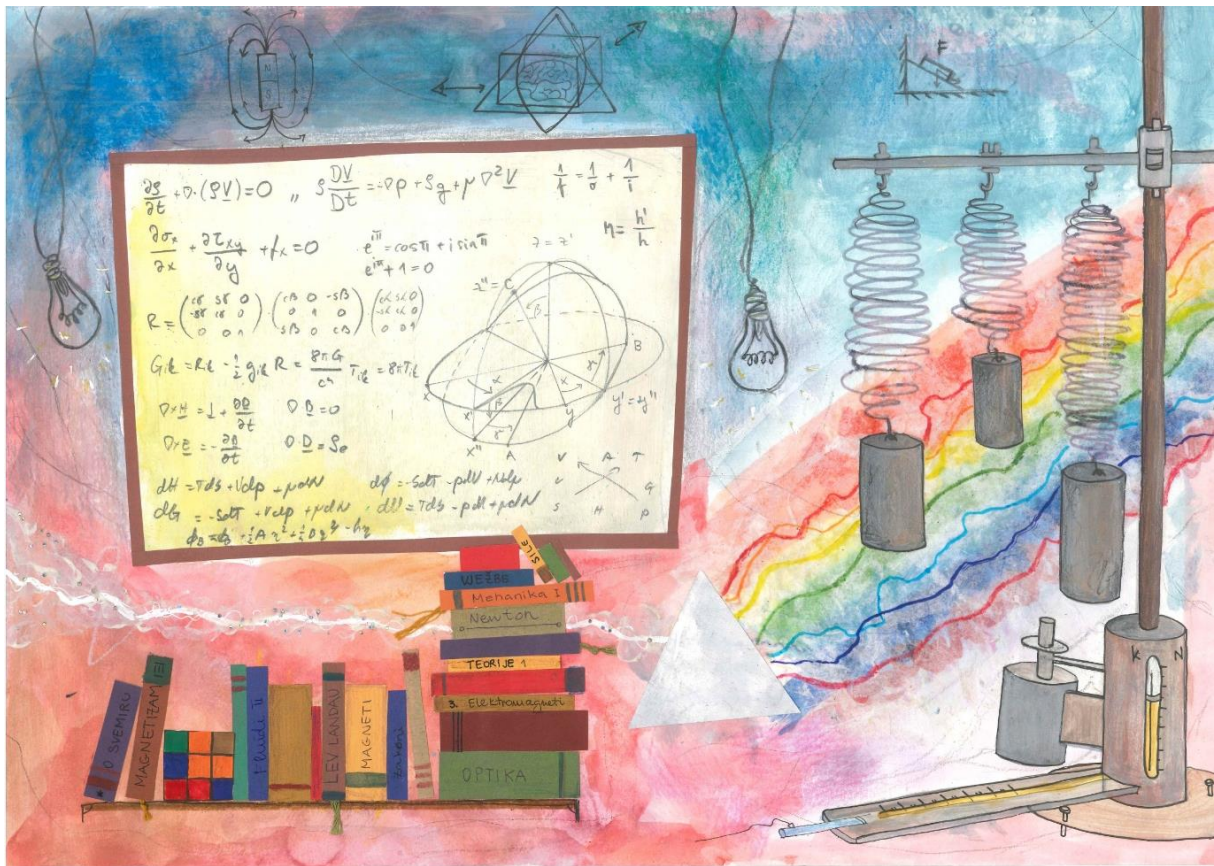 N
S
F
∂ρ/∂t + ∇·(ρV) = 0 ,, ρ DV/Dt = -∇p + ρg + μ∇²V 1/f = 1/o + 1/i
∂σx/∂x + ∂τxy/∂y + fx = 0
e^iπ = cosπ + i sinπ
e^iπ + 1 = 0
η = h'/h
z = z'
z'' = C
β
B
R = (cγ sγ 0 -sγ cγ 0 0 0 1) · (cβ 0 -sβ 0 1 0 sβ 0 cβ) (cα sα 0 -sα cα 0 0 0 1)
Gik = Rik - 1/2 gik R = 8πG/c⁴ Tik = 8πTik
x α β γ x' x'' A α γ y y' = y''
∇×H = J + ∂D/∂t ∇·B = 0
∇×E = -∂B/∂t ∇·D = ρ₀
V A T
U G
S H P
dH = Tds + Vdp + μdN dϕ = -SdT - pdV + μdN
dG = -SdT + Vdp + μdN dU = Tds - pdV + μdN
SILE
VJEŽBE
Mehanika I
Newton
TEORIJE 1
3. Elektromagneti
OPTIKA
O SVEMIRU
MAGNETIZAM
Fluidi II
LEV LANDAU
MAGNETI
Zakoni
K N